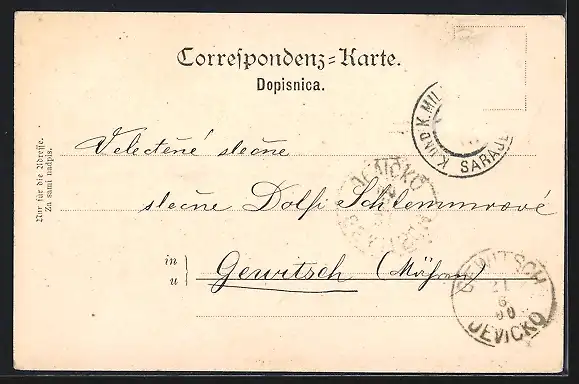 Correspondenz=Karte.
Dopisnica.
K UND K. MIL
SARAJE
Nur für die Adresse.
Za sami nadpis.
Velectěné slečne
JEVICKO
slečne Dolfi Schlemmrové
in
u
Gewitsch (Mähren)
GEWITSCH
21
6
00
JEVICKO